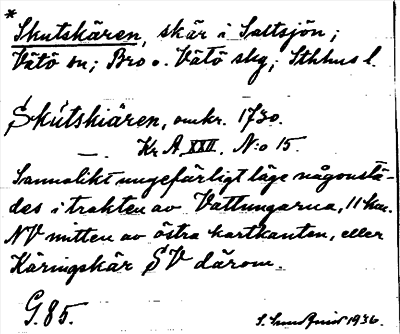 * Skutskären, skär i Saltsjön;
Vätö sn; Bro o. Vätö skg; Sthlms l.
Skútskiären, omkr. 1730.
Kr. A. XXII. N:o 15.
Sannolikt ungefärligt läge någonstä-
des i trakten av Vattungarna, 11 km.
NV mitten av östra kartkanten, eller
Käringskär SV därom.
G. 85.
1936.